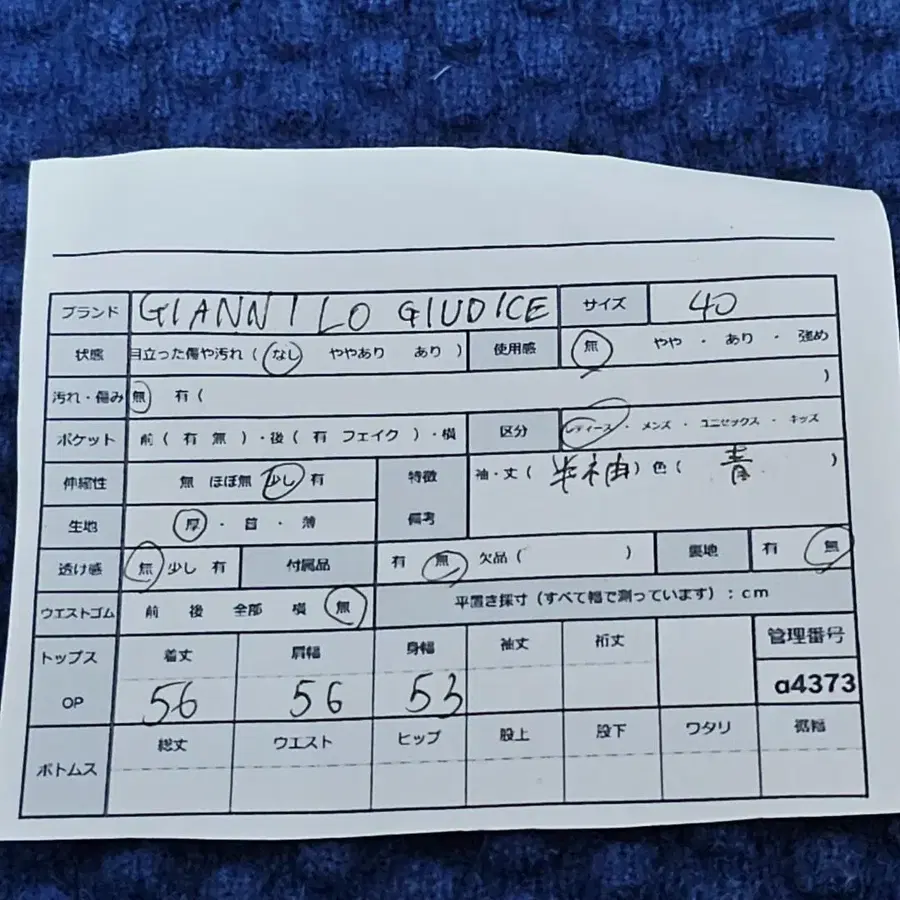 ブランド GIANNI LO GIUDICE サイズ 40
状態 目立った傷や汚れ ( なし ややあり あり ) 使用感 無 やや ・ あり ・ 強め
汚れ・傷み 無 有 ( )
ポケット 前 ( 有 無 ) ・後 ( 有 フェイク ) ・横 区分 レディース ・ メンズ ・ ユニセックス ・ キッズ
伸縮性 無 ほぼ無 少し 有 特徴 袖・丈 ( 半袖 ) 色 ( 青 )
生地 厚 ・ 普 ・ 薄 備考
透け感 無 少し 有 付属品 有 無 欠品 ( ) 裏地 有 無
ウエストゴム 前 後 全部 横 無 平置き採寸 (すべて幅で測っています) : cm
トップス 着丈 肩幅 身幅 袖丈 裄丈 管理番号
OP 56 56 53 a4373
ボトムス 総丈 ウエスト ヒップ 股上 股下 ワタリ 裾幅